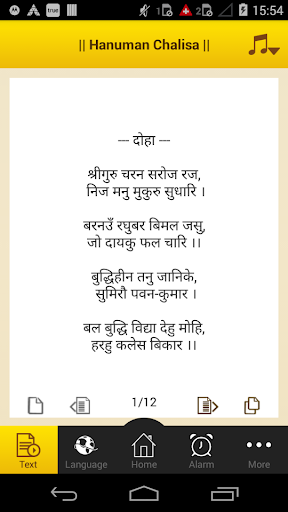 true
1
2
15:54
|| Hanuman Chalisa ||
--- दोहा ---
श्रीगुरु चरन सरोज रज,
निज मनु मुकुरु सुधारि ।
बरनउँ रघुबर बिमल जसु,
जो दायकु फल चारि ।।
बुद्धिहीन तनु जानिके,
सुमिरौ पवन-कुमार ।
बल बुद्धि विद्या देहु मोहि,
हरहु कलेस बिकार ।।
1/12
Text
Language
Home
Alarm
More